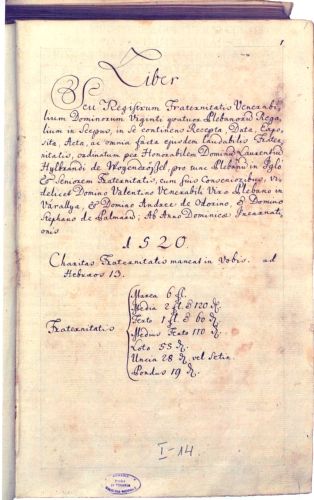 1
Liber
Seu Registrum Fraternitatis Venerabi-
lium Dominorum Viginti qvatuor Plebanorū Rega-
lium in Scepus, in se continens Recepta, Data, Expo-
sita, Acta, ac omnia facta ejusdem laudabilis Frater-
nitatis, ordinatum per Honorabilem Dominū Laurentiū
Hylbrandi de pro tunc Plebanū in Iglo
& Seniorem Fraternitatis, cum suis Consenioribus, vi-
delicet Domino Valentino Venerabili Viro Plebano in
Varallya, & Domino Andrea de Odorino, & Domino
Stephano de Palmand; Ab Anno Dominicæ Incarnati-
onis
1520.
Charitas Fraternitatis maneat in Vobis. ad
Hebræos 13.
Fraternitatis
Marca 6 fl.
Media 2 fl. & 120
Ferto 1 fl. & 60
Medius Ferto 110
Loto 55
Uncia 28 vel Setin.
Pondus 19
I-14